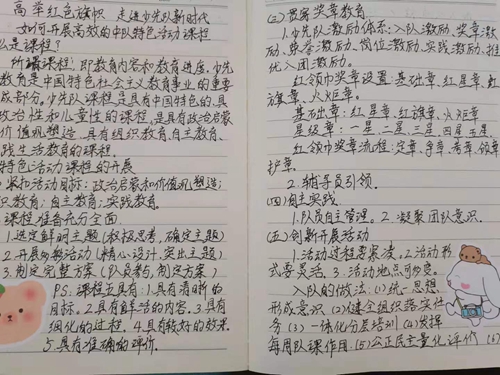 高举红色旗帜 走进少先队新时代
如何开展高效的中队特色活动课程
么是课程?
所谓课程:即教育内容和教育进度,少先
教育是中国特色社会主义教育事业的重要
成部分。少先队课程是具有中国特色的,具
政治性和儿童性的课程,是具有政治启蒙
价值观塑造、具有组织教育、自主教育、
践生活教育的课程.
特色活动课程的开展
紧扣活动目标:政治启蒙和价值观塑造;
织教育;自主教育;实践教育。
课程准备充分全面
1.选定鲜明主题(积极思考,确定主题)
2.开展的形式活动(精心设计,突出主题)
3.制定完整方案(队员参与,制定方案)
PS:课程五具有:1.具有清晰的
目标。2.具有鲜活的内容。3.具有
细化的过程。4.具有较好的效果.
5.具有准确的评价.
(三)贯穿奖章教育
1.少先队激励体系:入队激励、奖章激
励、荣誉激励、岗位激励、实践激励、推
优入团激励。
红领巾奖章设置:基础章:红星章、红
旗章、火炬章。
基础章:红星章、红旗章、火炬章
星级章:一星、二星、三星、四星、五星.
红领巾奖章流程:定章、争章、考章、颁章
护章.
2.辅导员引领.
(四)自主实践
1.队员自主管理。2.凝聚团队意识.
(五)创新开展活动
1.活动过程要紧凑。2.活动形
式要灵活。3.活动地点可多变。
入队的做法:(1)统一思想
形成意识(2)健全组织落实任
务(3)一体化分层培训(4)发挥
每周队课作用.(5)公正民主量化评价(6)